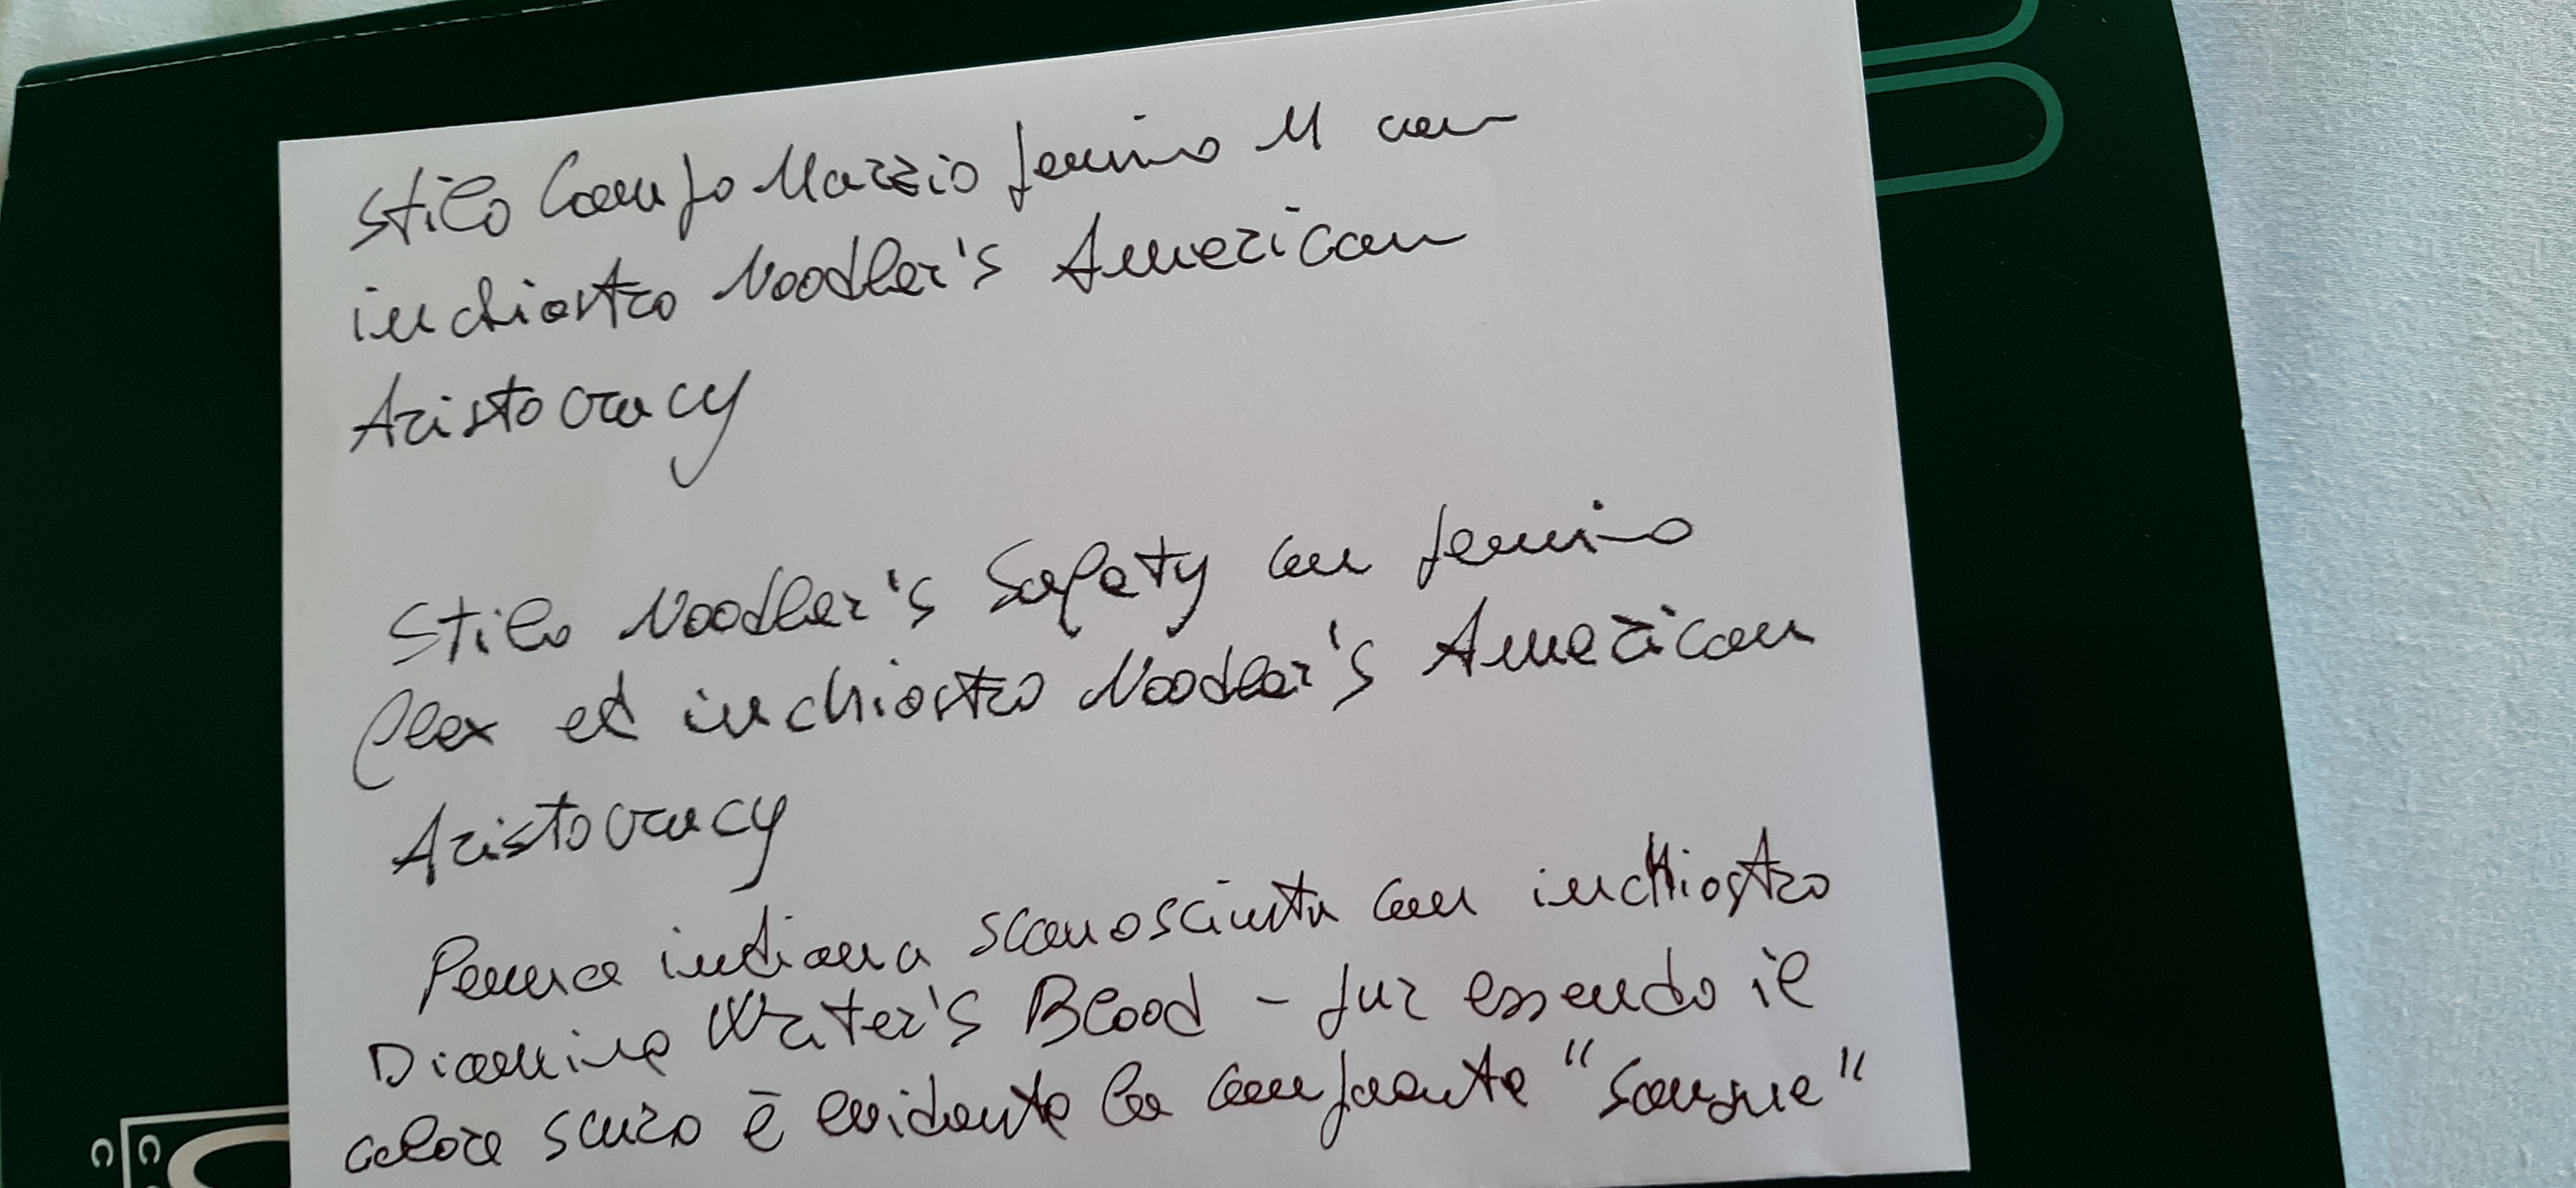 Stilo Campo Marzio pennino M con
inchiostro Noodler's American
Aristocracy
Stilo Noodler's Safety con pennino
flex ed inchiostro Noodler's American
Aristocracy
Penna indiana sconosciuta con inchiostro
Diamine Writer's Blood - pur essendo il
colore scuro è evidente la componente "sangue"
C C